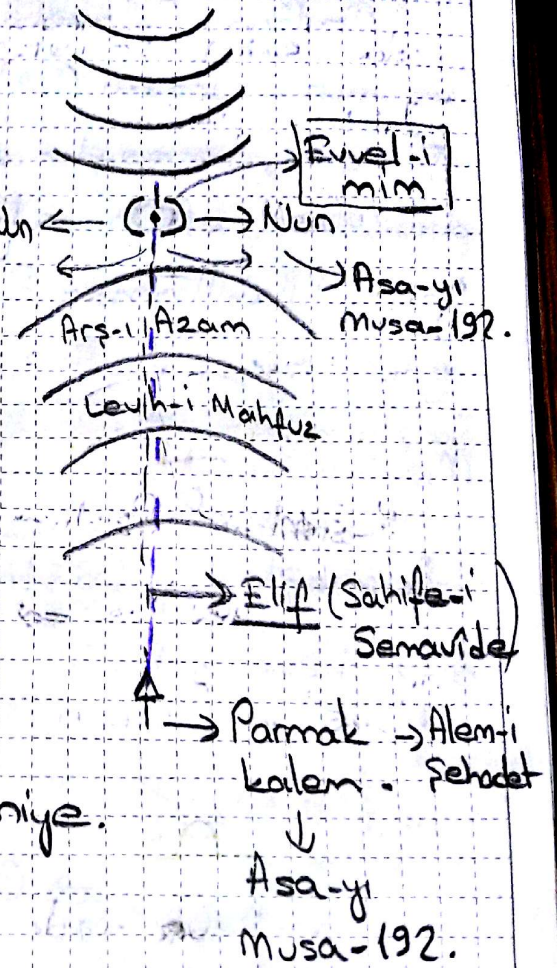 Evvel-i
mim
Nun
Asa-yı
Musa-192.
Arş-ı Azam
Levh-i Mahfuz
Elif (Sahife-i
Semavîde)
Parmak → Alem-i
kalem. Şehadet
niye.
Asa-yı
Musa-192.